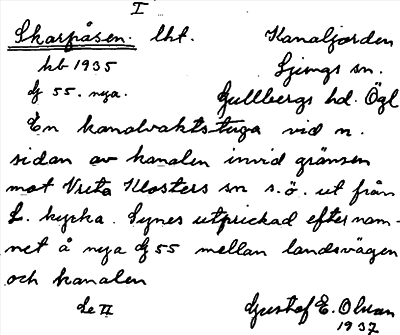 I
Skarpåsen. lht. Kanaljorden
hb 1935 Ljungs sn.
Gj 55. nya. Gullbergs hd. Ögl
En kanalvaktstuga vid n.
sidan av kanalen invid gränsen
mot Vreta Klosters sn s.ö. ut från
L. kyrka. Synes utprickad efter nam-
net å nya Gj 55 mellan landsvägen
och kanalen
Se II Gustaf E. Olsson
1937